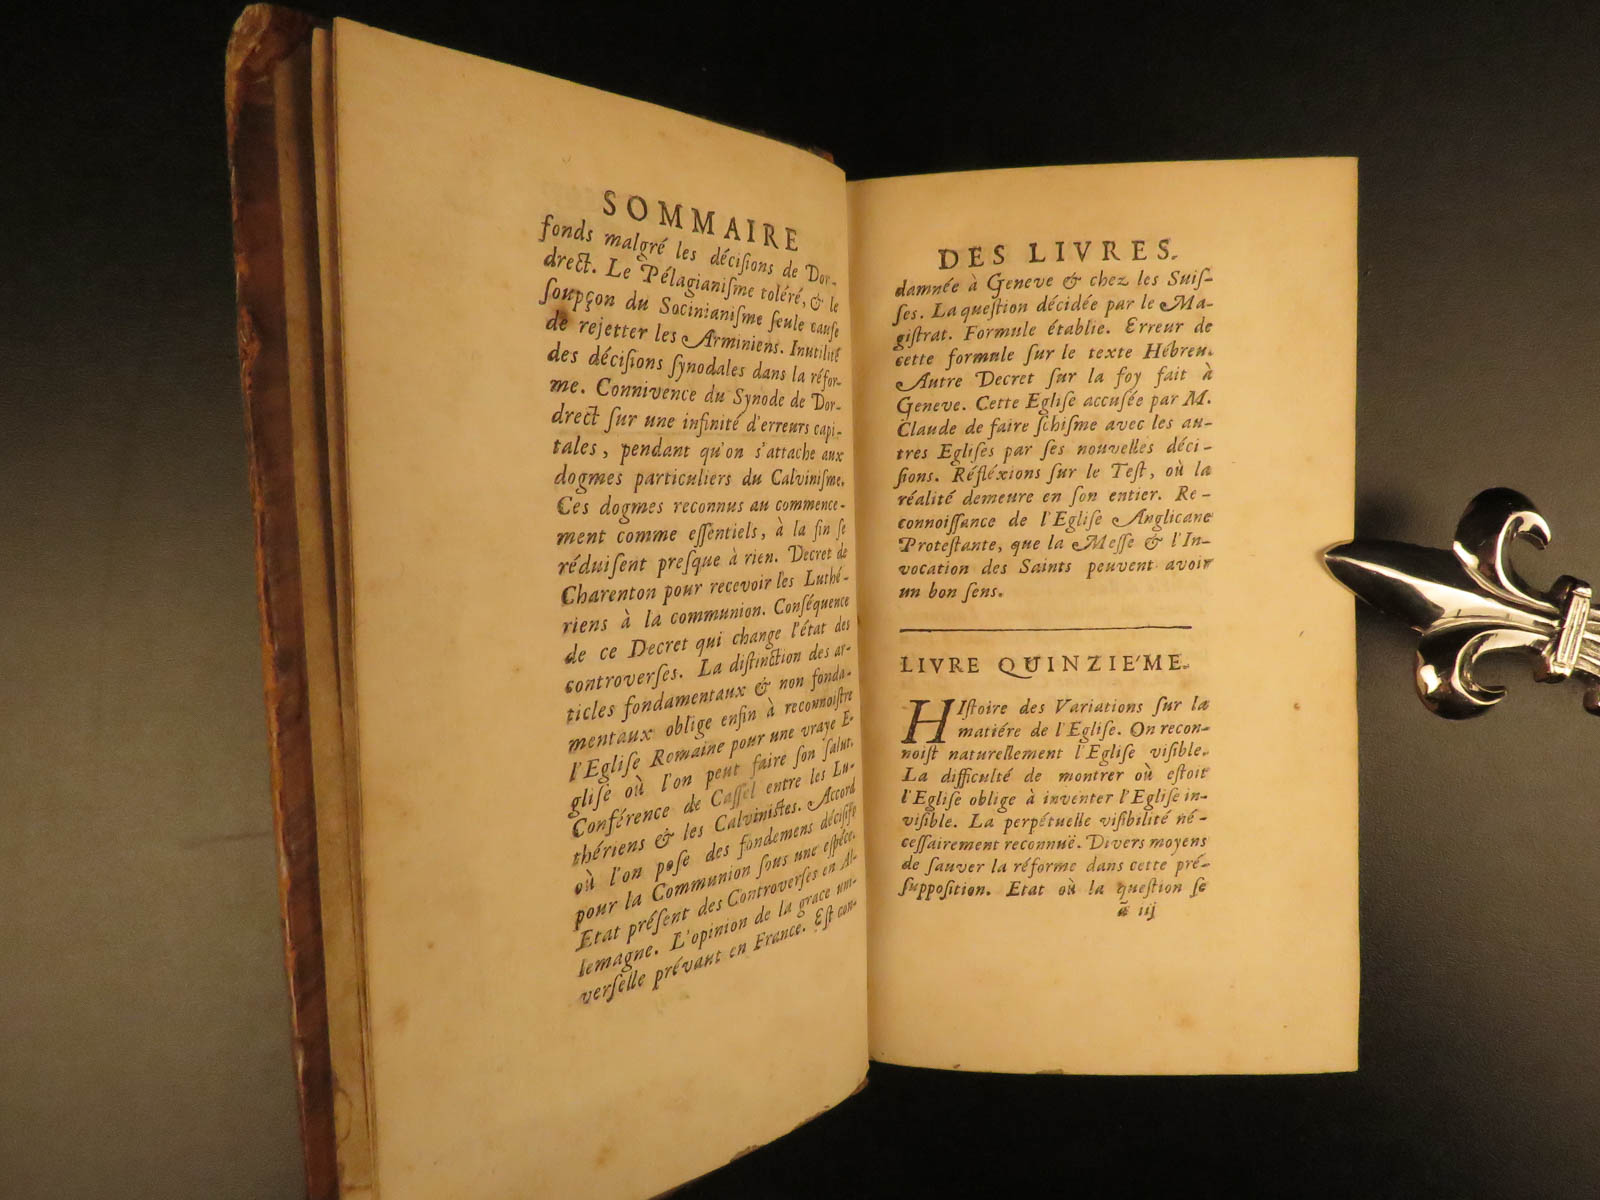 SOMMAIRE
fonds malgré les décisions de Dor-
drect. Le Pélagianisme toléré, & le
soupçon du Socinianisme seule cause
de rejetter les Arminiens. Inutilité
des décisions synodales dans la réfor-
me. Connivence du Synode de Dor-
drect sur une infinité d'erreurs capi-
tales, pendant qu'on s'attache aux
dogmes particuliers du Calvinisme.
Ces dogmes reconnus au commence-
ment comme essentiels, à la fin se
réduisent presque à rien. Decret de
Charenton pour recevoir les Luthé-
riens à la communion. Conséquence
de ce Decret qui change l'état des
controverses. La distinction des ar-
ticles fondamentaux & non fonda-
mentaux oblige enfin à reconnoistre
l'Eglise Romaine pour une vraye E-
glise où l'on peut faire son salut.
Conférence de Cassel entre les Lu-
thériens & les Calvinistes. Accord
où l'on pose des fondemens décisifs
pour la Communion sous une espéce.
Etat présent des Controverses en Al-
lemagne. L'opinion de la grace uni-
verselle prévaut en France. Est con-
DES LIVRES.
damnée à Geneve & chez les Suis-
ses. La question décidée par le Ma-
gistrat. Formule établie. Erreur de
cette formule sur le texte Hébreu.
Autre Decret sur la foy fait à
Geneve. Cette Eglise accusée par M.
Claude de faire schisme avec les au-
tres Eglises par ses nouvelles déci-
sions. Réfléxions sur le Test, où la
réalité demeure en son entier. Re-
connoissance de l'Eglise Anglicane
Protestante, que la Messe & l'In-
vocation des Saints peuvent avoir
un bon sens.
LIVRE QUINZIE'ME.
HIstoire des Variations sur la
matiére de l'Eglise. On recon-
noist naturellement l'Eglise visible.
La difficulté de montrer où estoit
l'Eglise oblige à inventer l'Eglise in-
visible. La perpétuelle visibilité né-
cessairement reconnuë. Divers moyens
de sauver la réforme dans cette pré-
supposition. Etat où la question se
ã iij